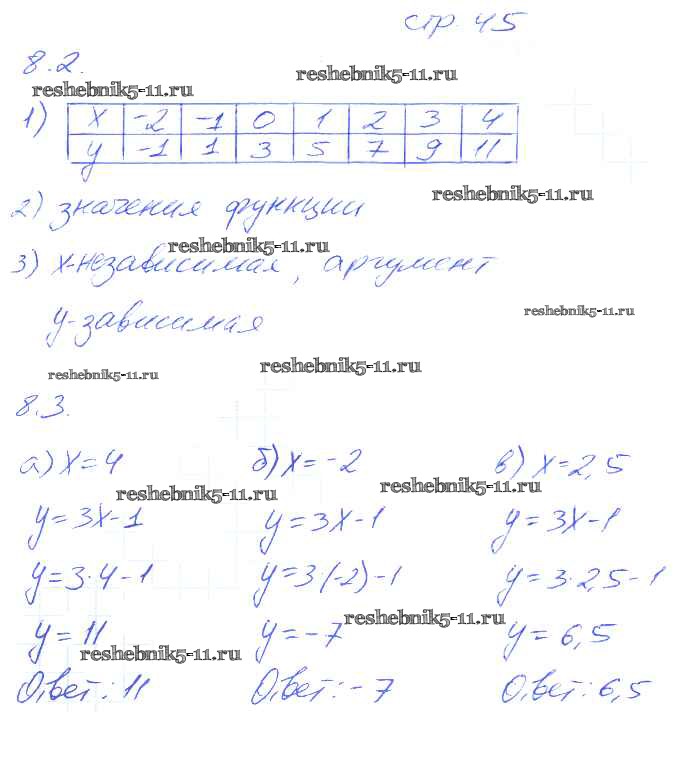 стр. 45
8.2.
reshebnik5-11.ru
reshebnik5-11.ru
1) x -2 -1 0 1 2 3 4
y -1 1 3 5 7 9 11
reshebnik5-11.ru
2) значения функции
reshebnik5-11.ru
3) x-независимая, аргумент
y-зависимая
reshebnik5-11.ru
reshebnik5-11.ru
reshebnik5-11.ru
8.3.
а) x=4 б) x=-2 в) x=2,5
reshebnik5-11.ru
reshebnik5-11.ru
y=3x-1 y=3x-1 y=3x-1
y=3·4-1 y=3(-2)-1 y=3·2,5-1
reshebnik5-11.ru
y=11 y=-7 y=6,5
reshebnik5-11.ru
Ответ: 11 Ответ: -7 Ответ: 6,5